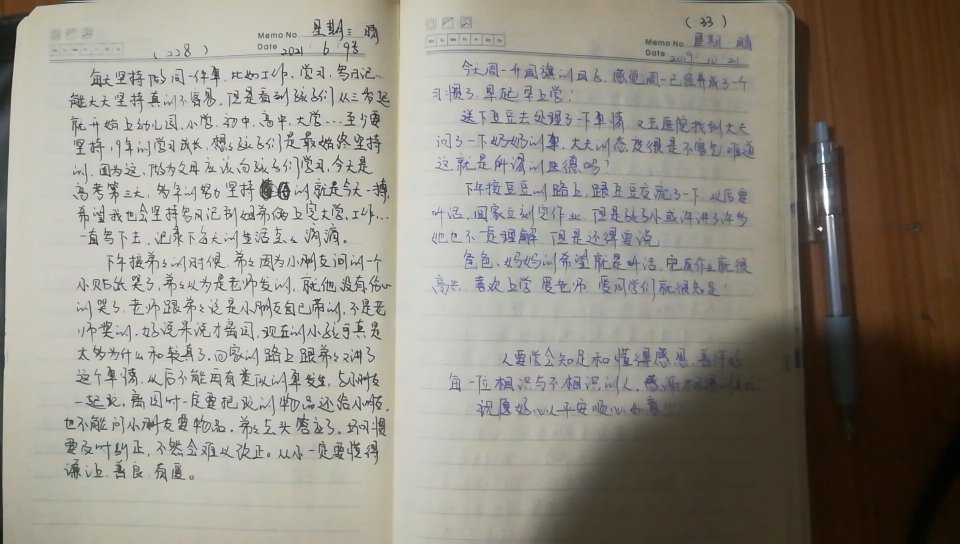 Memo No 星期三 晴
(228) Date 2021 6 9号
每天坚持做同一件事,比如工作,学习,写日记…
能天天坚持真的不容易,但是看到孩子们从三岁起
就开始上幼儿园,小学,初中,高中,大学…至少要
坚持19年的学习成长,想想孩子们是最始终坚持
的,因为这,做为父母应该向孩子们学习,今天是
高考第三天,多年的努力坚持的就是今天一搏,
希望我也会坚持写日记到姐弟俩上完大学,工作…
一直写下去,记录下每天的生活点点滴滴。
下午接弟弟的时候,弟弟因为小朋友间的一个
小贴纸哭了,弟弟以为是老师发的,就他没有伤心
的哭了,老师跟弟弟说是小朋友自己带的,不是老
师奖的,好说歹说才离园,现在的小孩子真是
太多为什么和较真了,回家的路上跟弟弟又讲了
这个事情,以后不能再有类似的事发生,与小朋友
一起玩,离园时一定要把玩的物品还给小朋友,
也不能问小朋友要物品,弟弟点头答应了。坏习惯
要及时纠正,不然会难以改正。从小一定要懂得
谦让,善良,有爱。
(33)
Memo No 星期 晴
Date 2019 10 21
今天周一升国旗的日子,感觉周一已经养成了一个
习惯了,早起早上学!
送下豆豆去处理了一下事情,又去医院找到大夫
问了一下奶奶的事,大夫的态度很是不客气,难道
这就是所谓的医德吗?
下午接豆豆的路上,跟豆豆交流了一下,以后要
听话,回家立刻写作业,但是孩子小或许讲了许多
她也不一定理解,但是还得要说
爸爸、妈妈的希望就是听话,完成作业就很
高兴,喜欢上学,爱老师,爱同学们就很知足!
人要学会知足和懂得感恩,善待
每一位相识与不相识的人,感谢相遇
祝愿好心人平安顺心如意!!